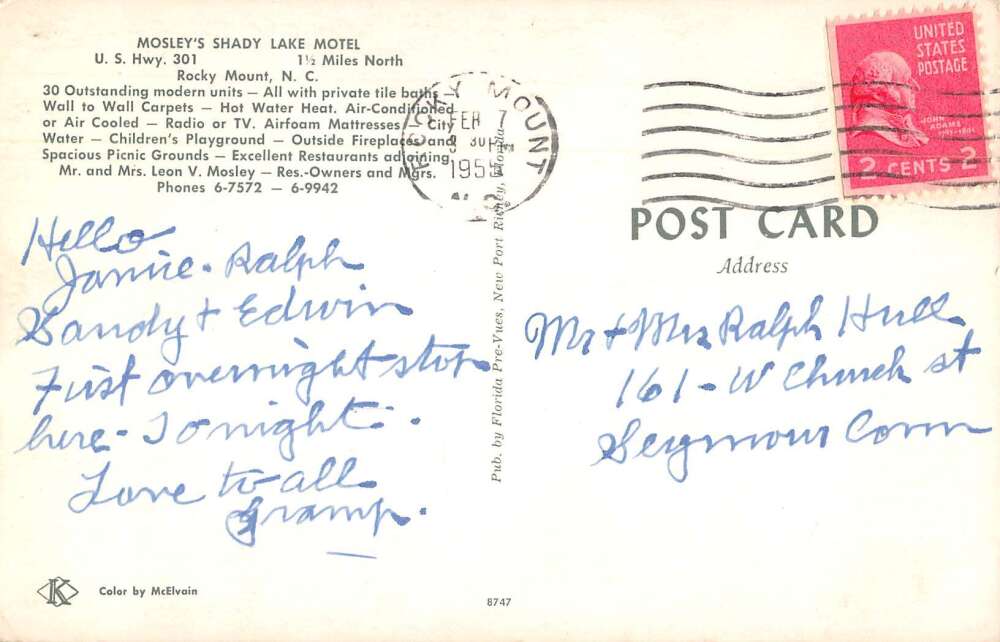 MOSLEY'S SHADY LAKE MOTEL
U. S. Hwy. 301 1½ Miles North
Rocky Mount, N. C.
30 Outstanding modern units — All with private tile baths
Wall to Wall Carpets — Hot Water Heat. Air-Conditioned
or Air Cooled — Radio or TV. Airfoam Mattresses — City
Water — Children's Playground — Outside Fireplaces and
Spacious Picnic Grounds — Excellent Restaurants adjoining
Mr. and Mrs. Leon V. Mosley — Res.-Owners and Mgrs.
Phones 6-7572 — 6-9942
ROCKY MOUNT
FEB 7
30 PM
1955
N.C.
UNITED
STATES
POSTAGE
JOHN
ADAMS
1797-1801
2 CENTS 2
POST CARD
Address
Hello
Janice - Ralph
Sandy + Edwin
First overnight stop
here - Tonight.
Love to all
Gramp.
Pub. by Florida Pre-Vues, New Port Richey, Florida
Mr + Mrs Ralph Hull
161 - W Church st
Seymour Conn
K
Color by McElvain
8747